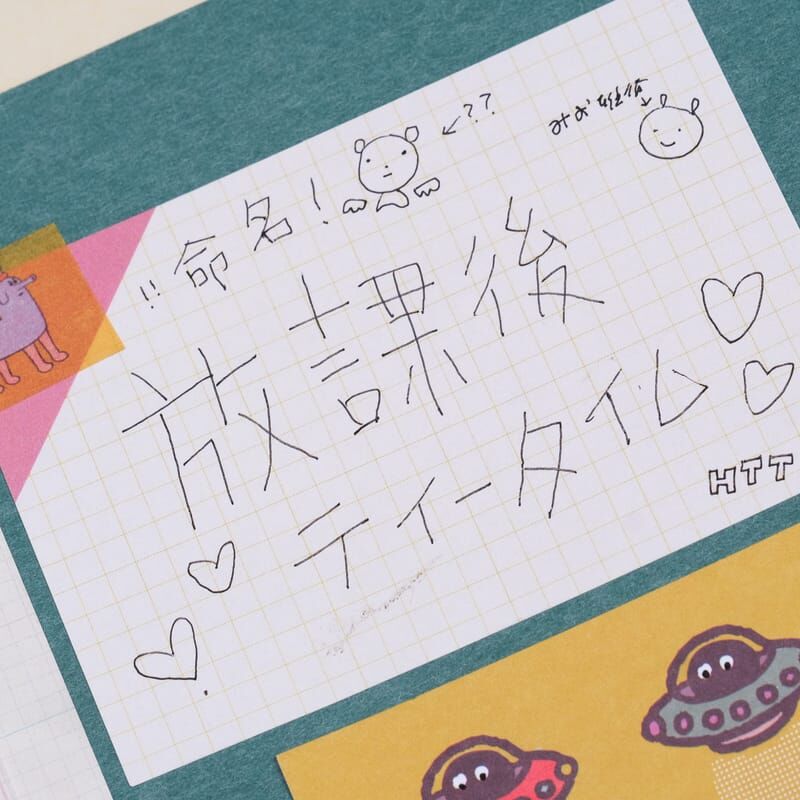 ←??
みお
!!命名!
放課後
ティータイム
HTT